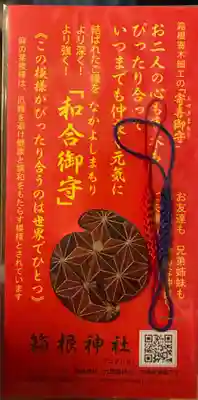 箱根寄木細工の「寄木御守」
お二人の心も
ぴったり合って
いつまでも仲良く元気に
お友達も 兄弟姉妹も
結ばれたご縁を なかよしまもり
より深く！ 「和合御守」
より強く！
《この模様がぴったり合うのは世界でひとつ》
麻の葉模様は、厄難を避け健康と調和をもたらす模様とされています
箱根神社